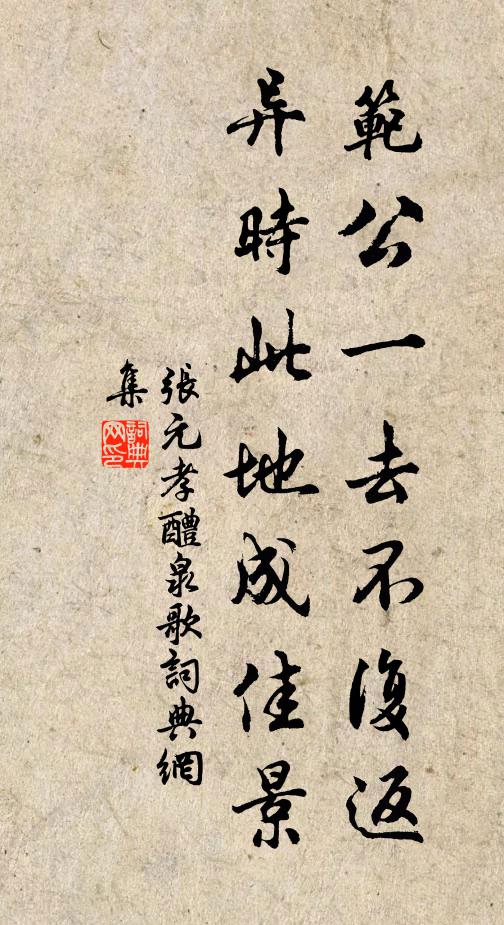 範公一去不復返
异時此地成佳景
張元孝醴泉歌詞典網
集
詞典
网印